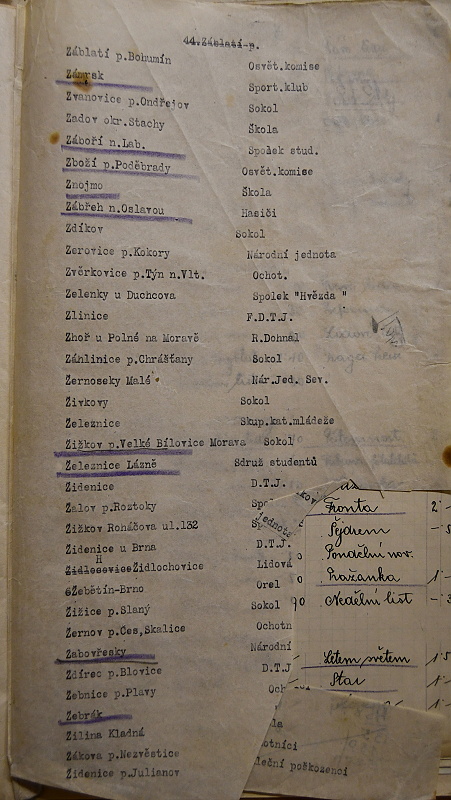 44.Záblatí p.
Záblatí p.Bohumín Osvět.komise
Zámrsk Sport.klub
Zvanovice p.Ondřejov Sokol
Zadov okr.Stachy Škola
Záboří n.Lab. Spolek stud.
Zboží p.Poděbrady Osvět.komise
Znojmo Škola
Zábřeh n.Oslavou Hasiči
Zdíkov Sokol
Zerovice p.Kokory Národní jednota
Zvěrkovice p.Týn n.Vlt. Ochot.
Zelenky u Duchcova Spolek "Hvězda "
Zlinice F.D.T.J.
Zhoř u Polné na Moravě R.Dohnal
Záhlinice p.Chrášťany Sokol
Žernoseky Malé Nár.Jed. Sev.
Živkovy Sokol
Železnice Skup.kat.mládeže
Žižkov p.Velké Bílovice Morava Sokol
Železnice Lázně Sdruž studentů
Židenice D.T.J.
Žalov p.Roztoky
Žižkov Roháčova ul.132
Židenice u Brna D.T.J.
Židlochovice Lidová
Žebětín-Brno Orel
Žižice p.Slaný Sokol
Žernov p.Čes,Skalice Ochotn
Žabovřesky Národní
Ždírec p.Blovice D.T.J
Žebnice p.Plavy Och
Žebrák
Žilina Kladná
Žákova p.Nezvěstice
Židenice p.Julianov
jednota
Fronta
Šejdrem
Pondělní nov.
Pražanka
Nedělní list
Letem světem
Star